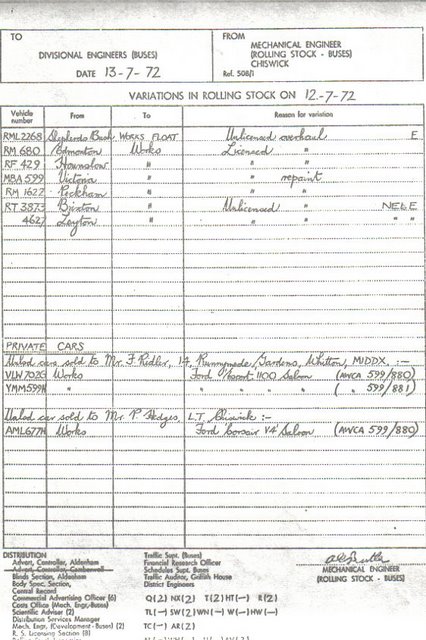 TO
DIVISIONAL ENGINEERS (BUSES)
DATE 13-7-72
FROM
MECHANICAL ENGINEER
(ROLLING STOCK - BUSES)
CHISWICK
Ref. 508/1
VARIATIONS IN ROLLING STOCK ON 12-7-72
Vehicle number From To Reason for variation
RML2268 Shepherds Bush WORKS FLOAT Unlicensed overhaul E
RM 680 Edmonton Works Licensed "
RF 429 Hounslow " " "
MBA 599 Victoria " " repaint
RM 1627 Peckham " " "
RT 3873 Brixton " Unlicensed " NELE
4627 Leyton " " " " "
PRIVATE CARS
Unlsd cars sold to Mr. F. Ridler, 14, Runnymede, Gardens, Whitton, MIDDX. :-
VLW 702G Works Ford 'Escort' 1100 Saloon (AWCA 599/880)
YMM599H " " " " " ( " 599/881)
Unlsd car sold to Mr. P. Hedges, L.T. Chiswick :-
AML677H Works Ford 'Corsair V4' Saloon (AWCA 599/880)
DISTRIBUTION
Advert. Controller, Aldenham
Advert. Controller, Camberwell
Blinds Section, Aldenham
Body Spec. Section,
Central Record
Commercial Advertising Officer (6)
Costs Office (Mech. Engr.-Buses)
Scientific Adviser (2)
Distribution Services Manager
Mech. Engr. (Development - Buses) (2)
R. S. Licensing Section (8)
Traffic Supt. (Buses)
Financial Research Officer
Schedules Supt. Buses
Traffic Auditor, Griffith House
District Engineers
Q(2) NX(2) T(2) HT(—) R(2)
TL(—) SW(2) WN(—) W(—) HW(—)
TC(—) AR(2)
MECHANICAL ENGINEER
(ROLLING STOCK - BUSES)